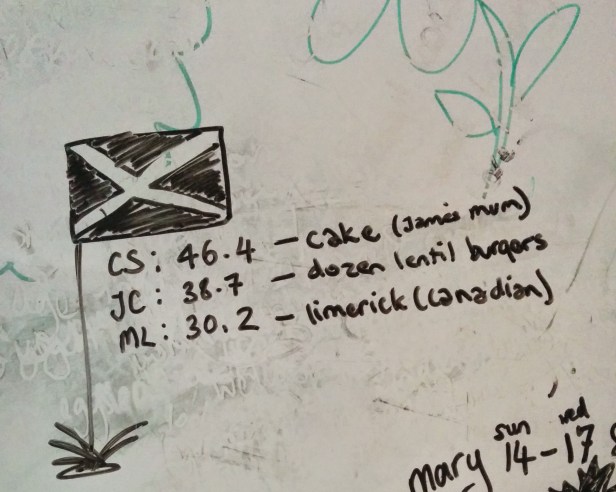 CS: 46.4 – cake (James mum)
JC: 38.7 – dozen lentil burgers
ML: 30.2 – limerick (Canadian)
sun wed
mary 14-17